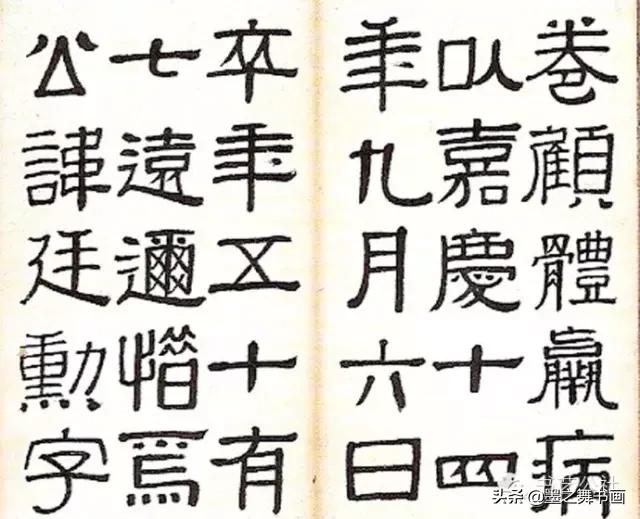 卷顧體羸病
以嘉慶十四
年九月六日
卒年五十有
七遠邇惜焉
公諱廷勳字
头条 @墨之舞书画